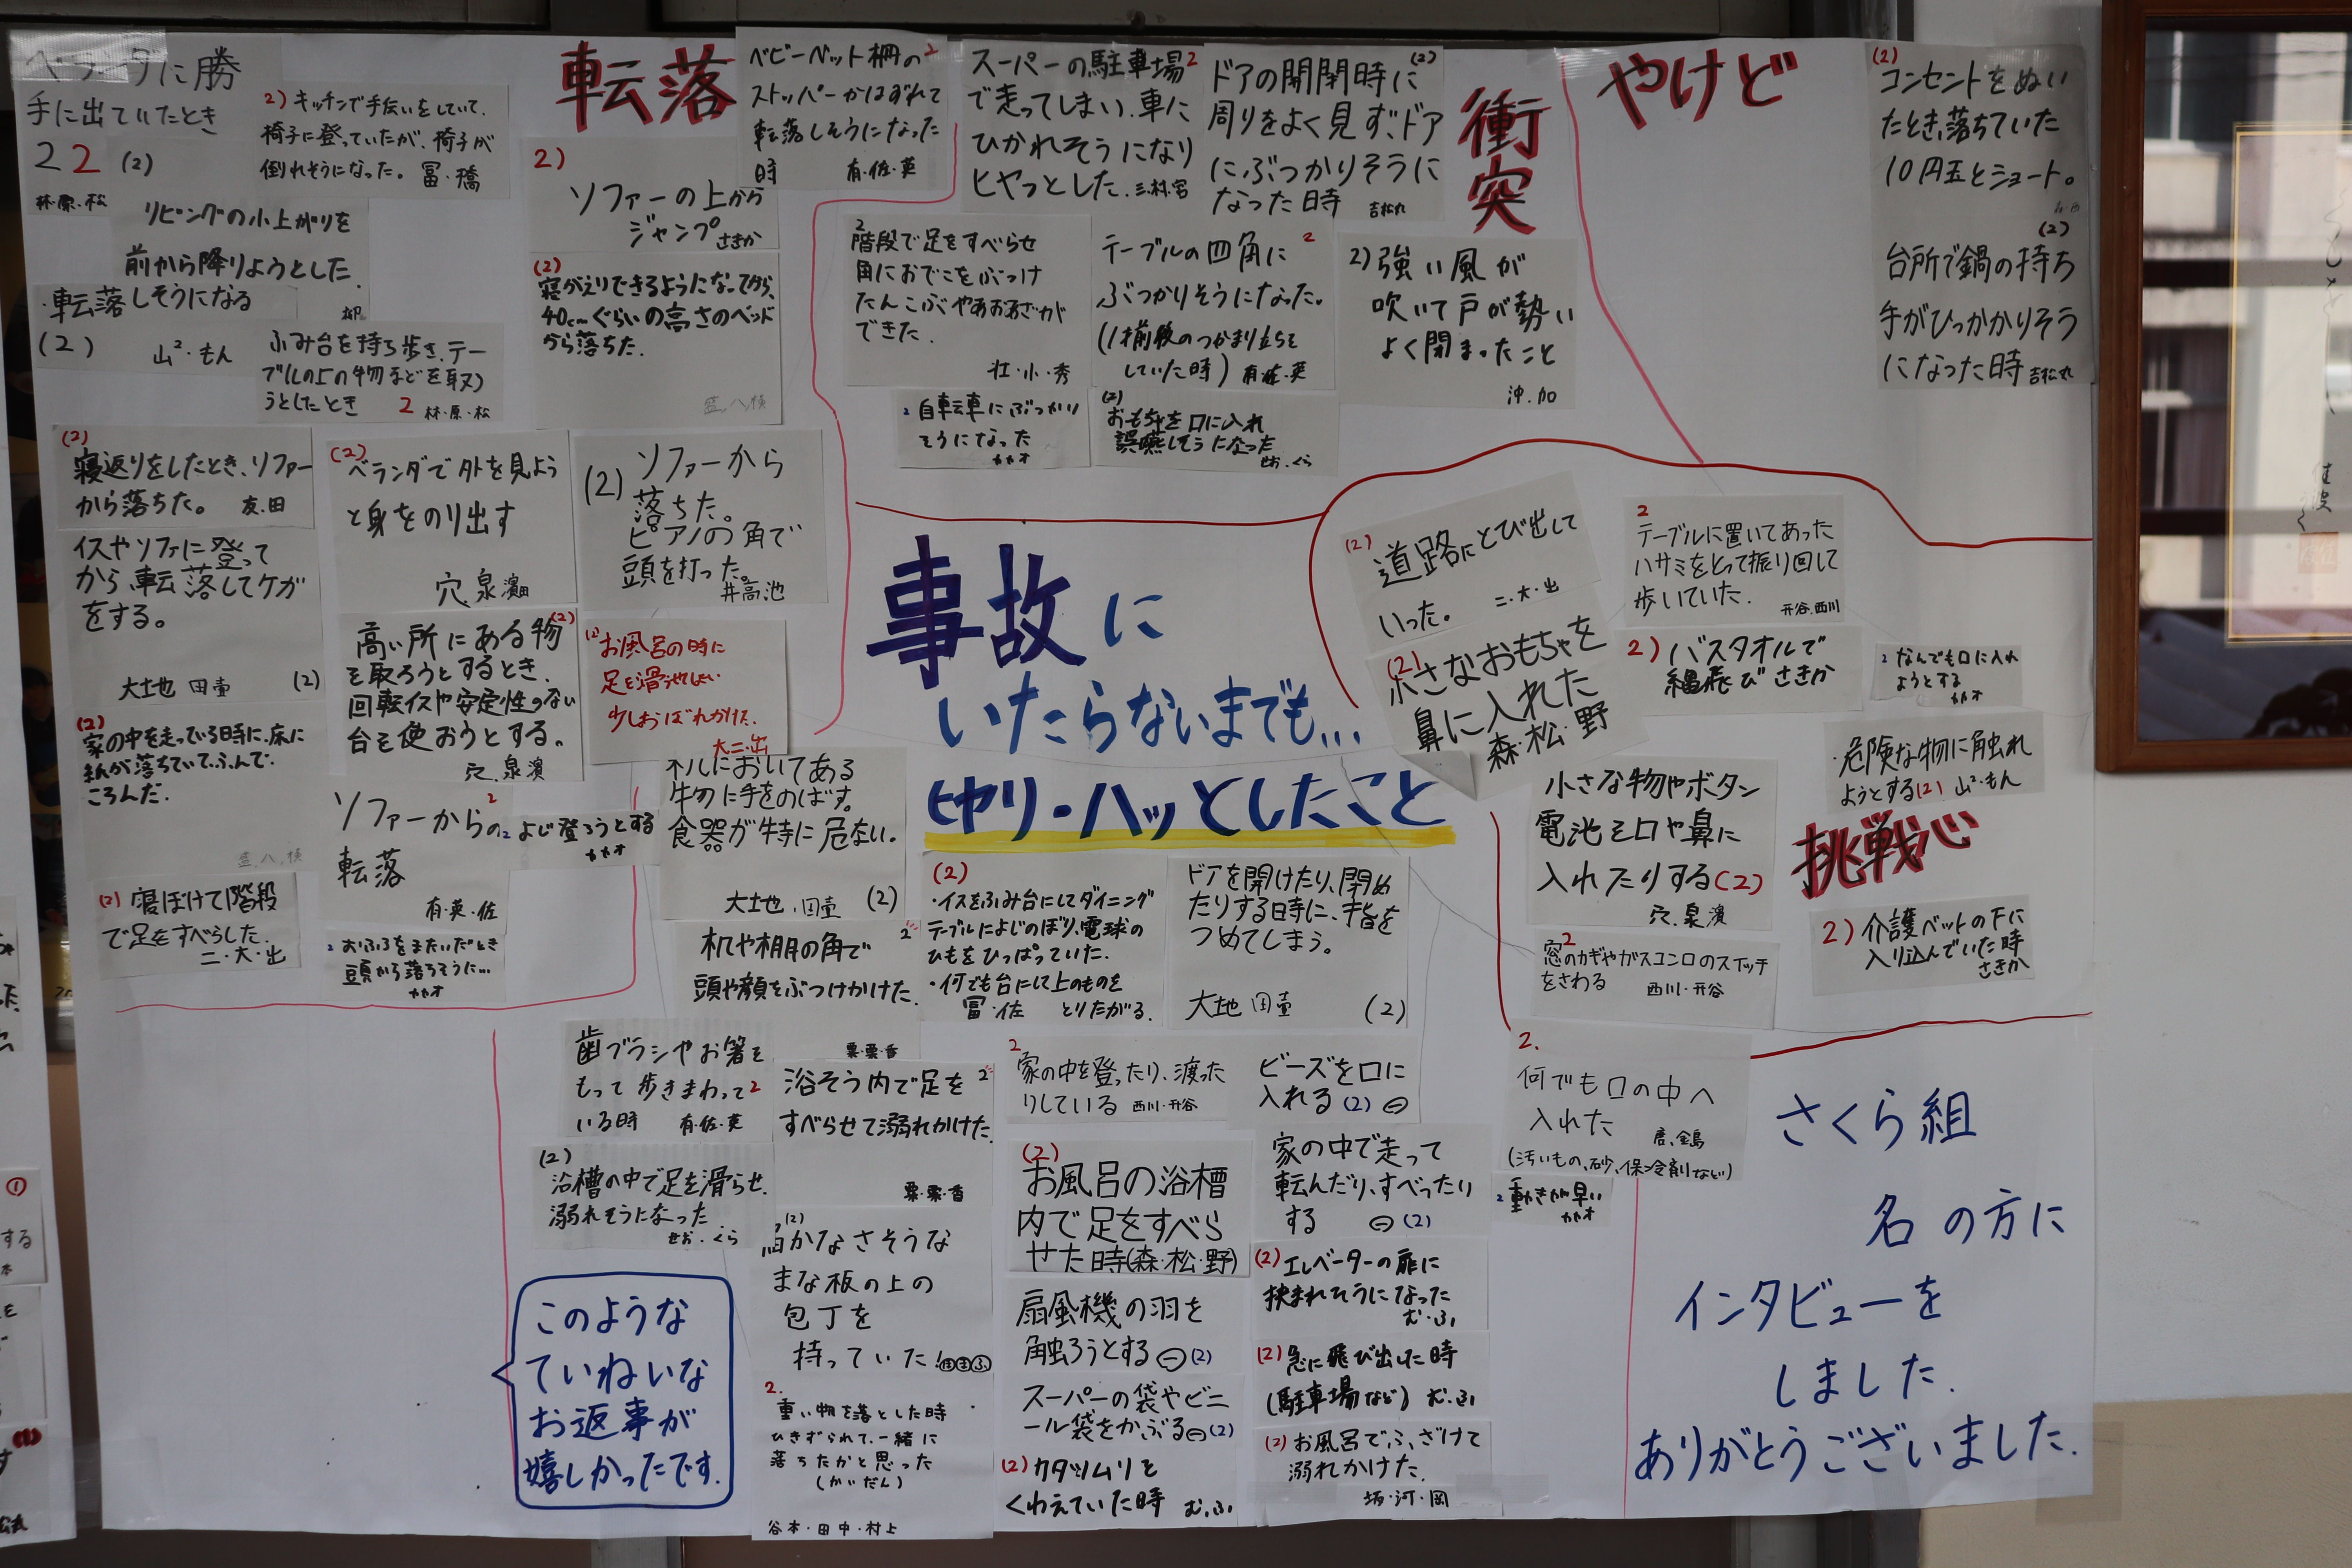 ベランダに勝
手に出ていたとき
22 (2)
林・原・松
2) キッチンで手伝いをしていて、
椅子に登っていたが、椅子が
倒れそうになった。 冨・橋
リビングの小上がりを
前から降りようとした。
柳
・転落しそうになる
(2) 山²・もん
ふみ台を持ち歩き、テー
ブルの上の物などを取ろ
うとしたとき 2 林・原・松
転落
2)
ソファーの上から
ジャンプ さきか
(2)
寝がえりできるようになってから、
40cmぐらいの高さのベッド
から落ちた。
ベビーベット柵の 2
ストッパーがはずれて
転落しそうになった
時 有・佐・英
(2)
寝返りをしたとき、ソファー
から落ちた。 友・田
イスやソファに登って
から、転落してケガ
をする。
大土地 田壷 (2)
(2)
家の中を走っている時に、床に
紙が落ちていて、ふんで、
ころんだ。
(2) 寝ぼけて階段
で足をすべらした。
二・大・出
(2)
ベランダで外を見よう
と身をのり出す
穴、泉 濱田
高い所にある物 (2)
を取ろうとするとき、
回転イスや安定性のない
台を使おうとする。
穴、泉 濱
ソファーからの 2
転落
有・英・佐
2 よじ登ろうとする
カカオ
2 おふろをまたいだとき
頭から落ちそうに…
カカオ
(2) ソファーから
落ちた。
ピアノの角で
頭を打った。
井高池
(2) お風呂の時に
足を滑らせてしまい
少しおぼれかけた。
大二・出
スーパーの駐車場 2
で走ってしまい、車に
ひかれそうになり
ヒヤっとした。 三村・宮
ドアの開閉時に (2)
周りをよく見ず、ドア
にぶつかりそうに
なった時 吉松丸
衝突
2
階段で足をすべらせ
角におでこをぶつけ
たんこぶやあおあざが
できた。
辻・小・秀
テーブルの四角に 2
ぶつかりそうになった。
(1才前後のつかまり立ちを
していた時) 有・佐・英
2) 強い風が
吹いて戸が勢い
よく閉まったこと
沖・加
2 自転車にぶつかり
そうになった
カカオ
(2)
おもちゃを口に入れ
誤嚥しそうになった
せお・くら
やけど
(2)
コンセントをぬい
たとき、落ちていた
10円玉とショート。
(2)
台所で鍋の持ち
手がひっかかりそう
になった時 吉松丸
事故に
いたらないまでも…
ヒヤリ・ハッとしたこと
(2) 道路にとび出して
いった。 二・大・出
(2)
小さなおもちゃを
鼻に入れた
森・松・野
2
テーブルに置いてあった
ハサミをとって振り回して
歩いていた。
开谷、西川
2) バスタオルで
縄飛び さきか
2 なんでも口に入れ
ようとする
カカオ
・危険な物に触れ
ようとする(2) 山²・もん
小さな物やボタン
電池を口や鼻に
入れたりする(2)
穴、泉 濱
挑戦心
2
窓のカギやガスコンロのスイッチ
をさわる 西川・开谷
2) 介護ベットの下に
入り込んでいた時
さきか
ブルにおいてある
物に手をのばす。
食器が特に危ない。
大土地 田壷 (2)
机や棚の角で 2
頭や顔をぶつけかけた。
栗・栗・香
(2)
・イスをふみ台にしてダイニング
テーブルによじのぼり、電球の
ひもをひっぱっていた。
・何でも台にして上のものを
とりたがる。
冨・佐
ドアを開けたり、閉め
たりする時に、手指を
つめてしまう。
大土地 田壷 (2)
歯ブラシやお箸を
もって歩きまわって 2
いる時 有・佐・英
浴そう内で足を 2
すべらせて溺れかけた。
栗・栗・香
2
家の中を登ったり、渡った
りしている 西川・开谷
ビーズを口に
入れる (2)
2.
何でも口の中へ
入れた
(汚いもの、砂、保冷剤など)
2 動きが早い
カカオ
(2)
浴槽の中で足を滑らせ、
溺れそうになった
せお・くら
(2)
お風呂の浴槽
内で足をすべら
せた時(森・松・野)
家の中で走って
転んだり、すべったり
する (2)
(2)
かなさそうな
まな板の上の
包丁を
持っていた!
扇風機の羽を
触ろうとする (2)
(2) エレベーターの扉に
挟まれそうになった
む・ふ
(2) 急に飛び出した時
(駐車場など) む・ふ
2.
重い物を落とした時
ひきずられて、一緒に
落ちたかと思った
(かいだん)
谷本・田中・村上
スーパーの袋やビニ
ール袋をかぶる (2)
(2) カタツムリを
くわえていた時 む・ふ
(2) お風呂でふざけて
溺れかけた。
坂・河・岡
このような
ていねいな
お返事が
嬉しかったです。
さくら組
名の方に
インタビューを
しました。
ありがとうございました。